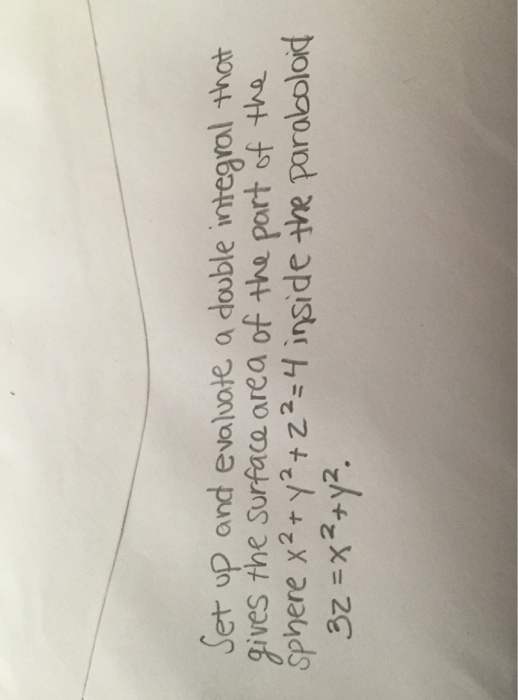 Set up and evaluate a double integral that
gives the surface area of the part of the
sphere x² + y² + z² = 4 inside the paraboloid
3z = x² + y².